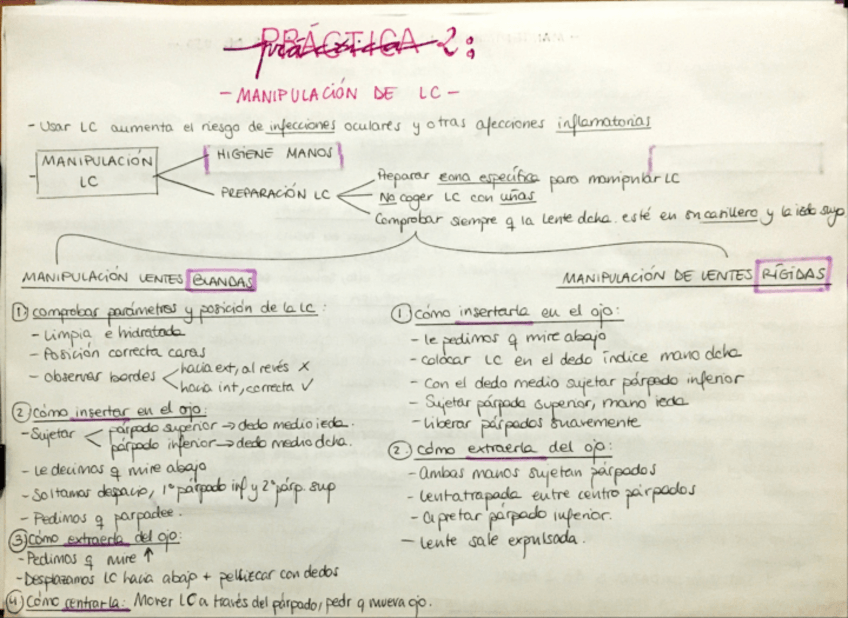 PRÁCTICA 2:
- MANIPULACIÓN DE LC -
- Usar LC aumenta el riesgo de infecciones oculares y otras afecciones inflamatorias
- MANIPULACIÓN LC
HIGIENE MANOS
PREPARACIÓN LC
Preparar zona específica para manipular LC
No coger LC con uñas
Comprobar siempre q la lente dcha. esté en su canillero y la izda suyo
MANIPULACIÓN LENTES BLANDAS
① comprobar parámetros y posición de la LC:
- Limpia e hidratada
- Posición correcta caras
- Observar bordes
hacia ext, al revés X
hacia int, correcta ✓
② cómo insertar en el ojo:
- Sujetar
párpado superior → dedo medio izda.
párpado inferior → dedo medio dcha.
- Le decimos q mire abajo
- Soltamos despacio, 1º párpado inf y 2º párp. sup
- Pedimos q parpadee.
③ Cómo extraerla del ojo:
- Pedimos q mire ↑
- Desplazamos LC hacia abajo + pellizcar con dedos
④ Cómo centrarla: Mover LC a través del párpado, pedir q mueva ojo.
MANIPULACIÓN DE LENTES RÍGIDAS
① Cómo insertarla en el ojo:
- le pedimos q mire abajo
- colocar LC en el dedo índice mano dcha
- Con el dedo medio sujetar párpado inferior
- Sujetar párpado superior, mano izda
- Liberar párpados suavemente
② cómo extraerla del ojo:
- Ambas manos sujetan párpados
- Lente atrapada entre centro párpados
- Apretar párpado inferior.
- Lente sale expulsada.